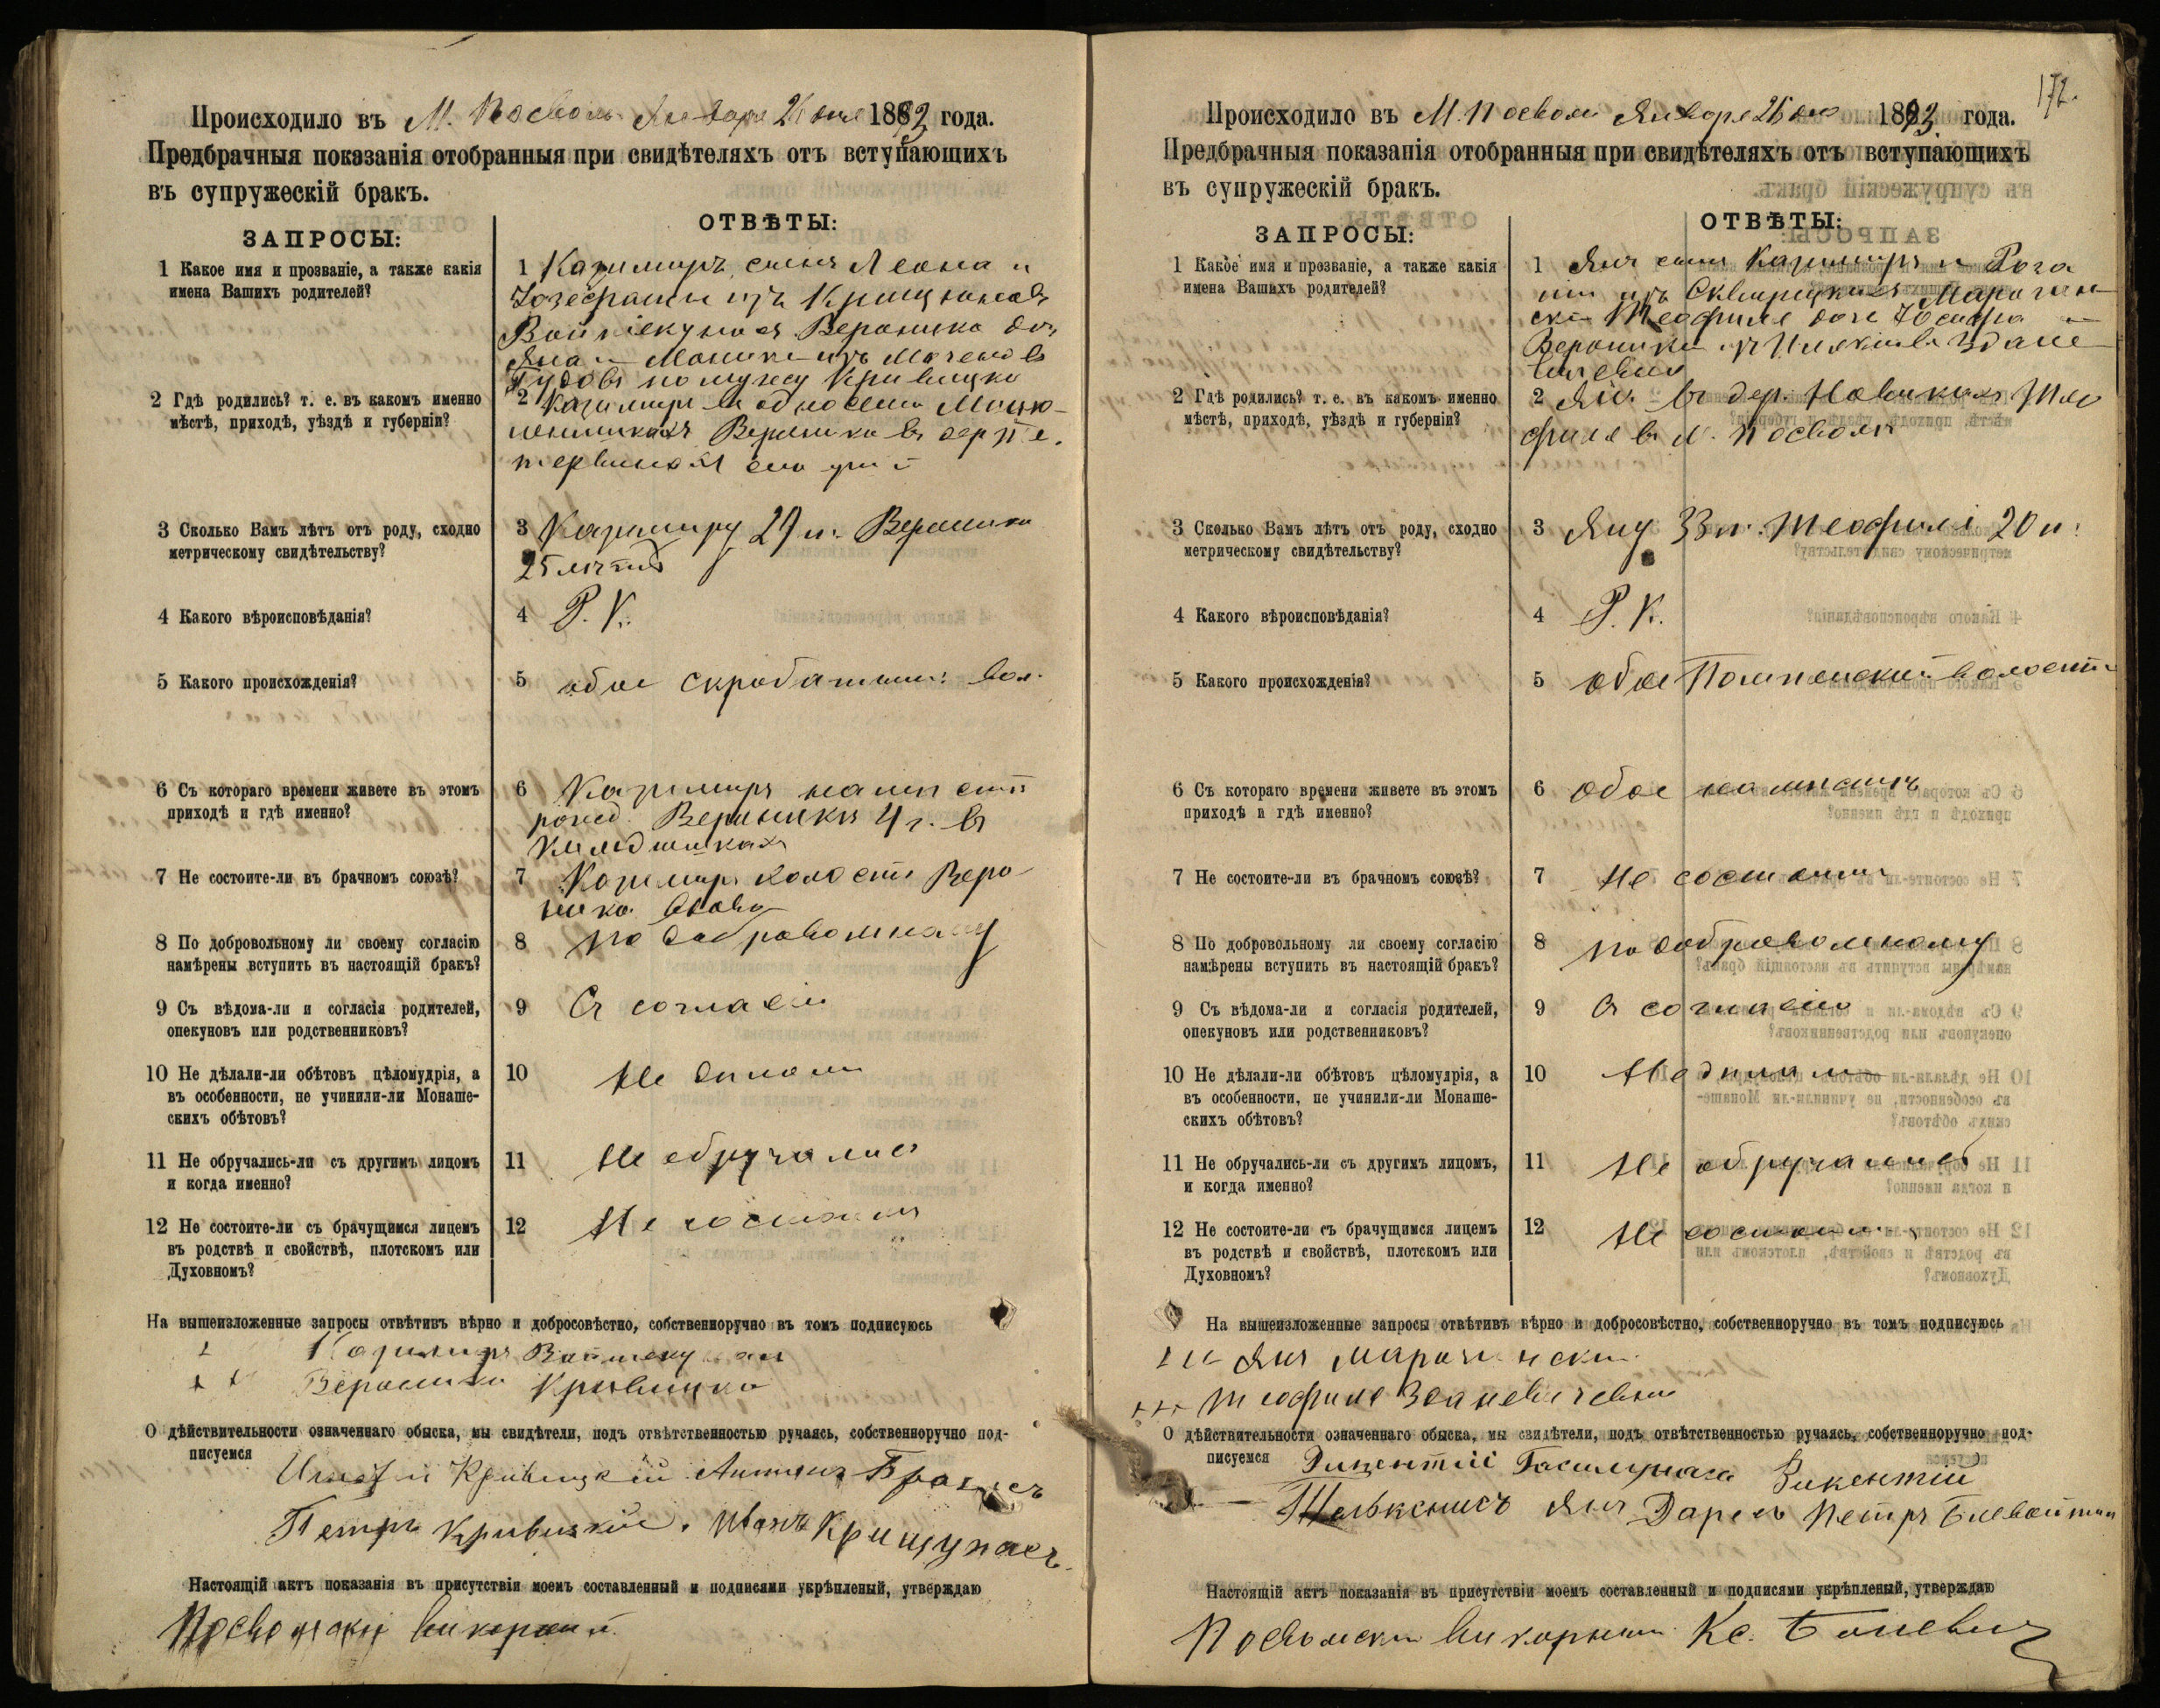 Происходило въ М. Посволь Января 26 дня 1893 года.
Предбрачныя показанія отобранныя при свидѣтеляхъ отъ вступающихъ
въ супружескій бракъ.
ЗАПРОСЫ:
ОТВѢТЫ:
1 Какое имя и прозваніе, а также какія
имена Вашихъ родителей?
1 Казимиръ сынъ Леона и
Іозефаты изъ
Вероника доч
Яна и Моники изъ
по мужу Кривицка
2 Гдѣ родились? т. е. въ какомъ именно
мѣстѣ, приходѣ, уѣздѣ и губерніи?
2 Казимиръ въ
Вероника въ дер
3 Сколько Вамъ лѣтъ отъ роду, сходно
метрическому свидѣтельству?
3 Казимиру 29 л. Вероника
25 лѣтъ
4 Какого вѣроисповѣданія?
4 Р. К.
5 Какого происхожденія?
5 обое вол.
6 Съ котораго времени живете въ этомъ
приходѣ и гдѣ именно?
6 Казимиръ на мѣстѣ
рожд. Вероника 4 г. въ
7 Не состоите-ли въ брачномъ союзѣ?
7 Казимиръ холостъ Веро
ника вдова
8 По добровольному ли своему согласію
намѣрены вступить въ настоящій бракъ?
8 по добровольному
9 Съ вѣдома-ли и согласія родителей,
опекуновъ или родственниковъ?
9 Съ согласія
10 Не дѣлали-ли обѣтовъ цѣломудрія, а
въ особенности, не учинили-ли Монаше-
скихъ обѣтовъ?
10 Не дѣлали
11 Не обручались-ли съ другимъ лицомъ
и когда именно?
11 Не обручались
12 Не состоите-ли съ брачущимся лицемъ
въ родствѣ и свойствѣ, плотскомъ или
Духовномъ?
12 Не состоимъ
На вышеизложенные запросы отвѣтивъ вѣрно и добросовѣстно, собственноручно въ томъ подписуюсь
Казимиръ
Вероника Кривицка
О дѣйствительности означеннаго обыска, мы свидѣтели, подъ отвѣтственностью ручаясь, собственноручно под-
писуемся
Кривицкій Антонъ
Петръ Кривицкій. Иванъ Крищунасъ
Настоящій актъ показанія въ присутствіи моемъ составленный и подписями укрѣпленый, утверждаю
Посвольскій викарный
172.
Происходило въ М. Посволь Января 26 дня 1893 года.
Предбрачныя показанія отобранныя при свидѣтеляхъ отъ вступающихъ
въ супружескій бракъ.
ЗАПРОСЫ:
ОТВѢТЫ:
1 Какое имя и прозваніе, а также какія
имена Вашихъ родителей?
1 Янъ сынъ Казимира и Роза
изъ
Теофиля дочь Іосифа и
Вероники изъ
2 Гдѣ родились? т. е. въ какомъ именно
мѣстѣ, приходѣ, уѣздѣ и губерніи?
2 Янъ въ дер. Новикахъ Тео
филя въ м. Посволь
3 Сколько Вамъ лѣтъ отъ роду, сходно
метрическому свидѣтельству?
3 Яну 33 л. Теофилі 20 л.
4 Какого вѣроисповѣданія?
4 Р. К.
5 Какого происхожденія?
5 обое Помпенской волости
6 Съ котораго времени живете въ этомъ
приходѣ и гдѣ именно?
6 обое на мѣстѣ
7 Не состоите-ли въ брачномъ союзѣ?
7 Не состоимъ
8 По добровольному ли своему согласію
намѣрены вступить въ настоящій бракъ?
8 по добровольному
9 Съ вѣдома-ли и согласія родителей,
опекуновъ или родственниковъ?
9 Съ согласія
10 Не дѣлали-ли обѣтовъ цѣломудрія, а
въ особенности, не учинили-ли Монаше-
скихъ обѣтовъ?
10 Не дѣлали
11 Не обручались-ли съ другимъ лицомъ,
и когда именно?
11 Не обручались
12 Не состоите-ли съ брачущимся лицемъ
въ родствѣ и свойствѣ, плотскомъ или
Духовномъ?
12 Не состоимъ
На вышеизложенные запросы отвѣтивъ вѣрно и добросовѣстно, собственноручно въ томъ подписуюсь
Янъ
Теофиля
О дѣйствительности означеннаго обыска, мы свидѣтели, подъ отвѣтственностью ручаясь, собственноручно под-
писуемся
Викентій
Янъ Петръ
Настоящій актъ показанія въ присутствіи моемъ составленный и подписями укрѣпленый, утверждаю
Посвольскій викарный Кс.